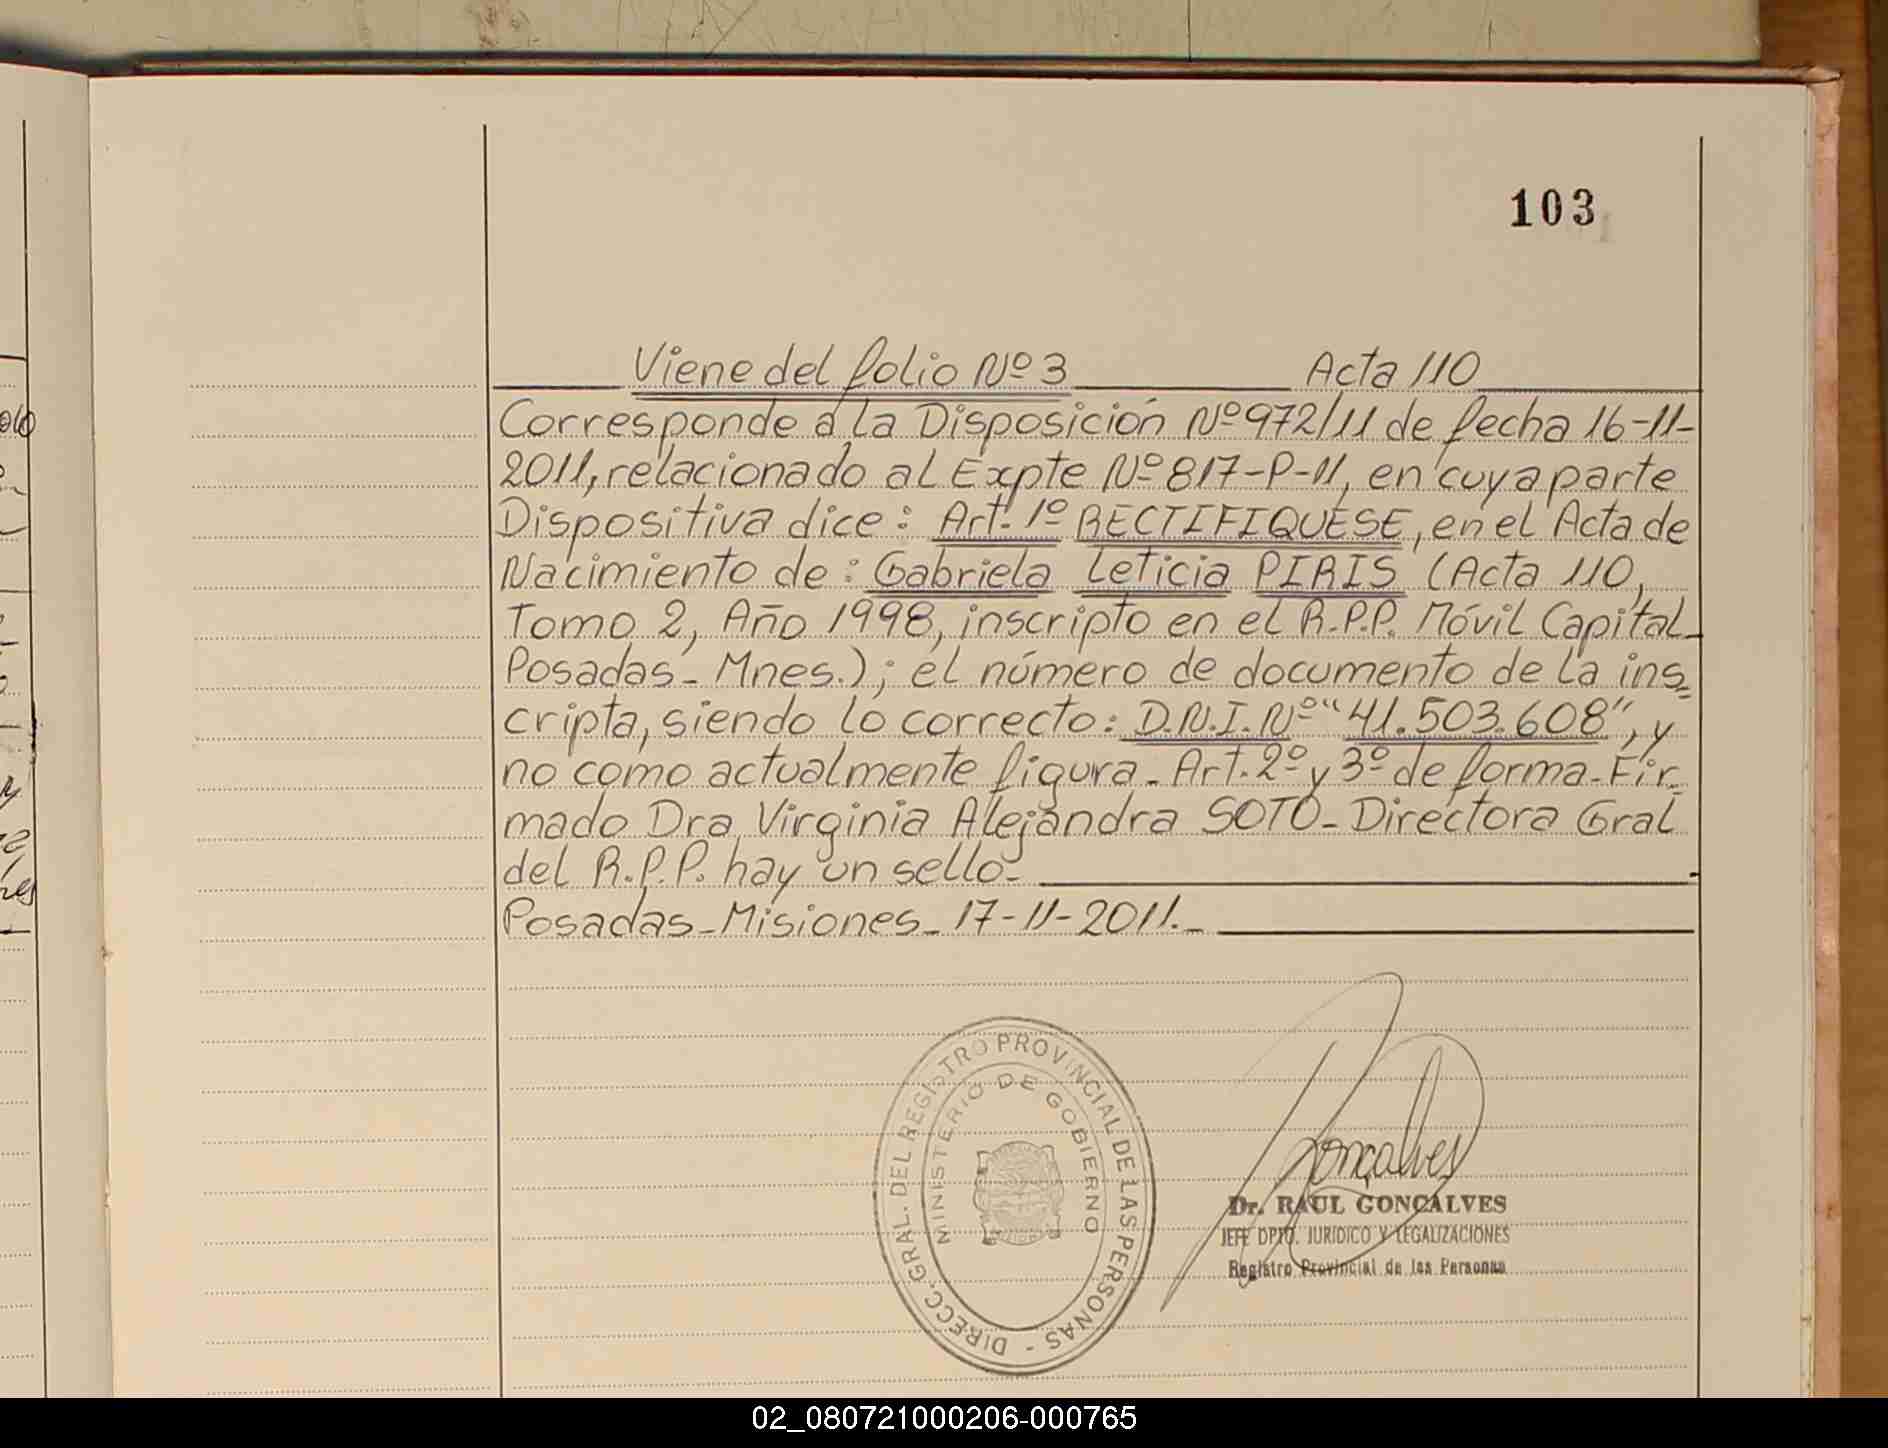 103
Viene del folio Nº 3 Acta 110
Corresponde a la Disposición Nº 972/11 de fecha 16-11-
2011, relacionado al Expte Nº 817-P-11, en cuya parte
Dispositiva dice: Art. 1º RECTIFIQUESE, en el Acta de
Nacimiento de: Gabriela Leticia PIRIS (Acta 110,
Tomo 2, Año 1998, inscripto en el R.P.P. Móvil Capital-
Posadas - Mnes.); el número de documento de la ins=
cripta, siendo lo correcto: D.N.I. Nº "41.503.608", y
no como actualmente figura - Art. 2º y 3º de forma - Fir=
mado Dra Virginia Alejandra SOTO - Directora Gral
del R.P.P. hay un sello-
Posadas - Misiones - 17-11-2011.-
DIRECC. GRAL. DEL REGISTRO PROVINCIAL DE LAS PERSONAS -
MINISTERIO DE GOBIERNO
Gonçalves
Dr. RAUL GONÇALVES
JEFE DPTO. JURIDICO Y LEGALIZACIONES
Registro Provincial de las Personas
02_080721000206-000765